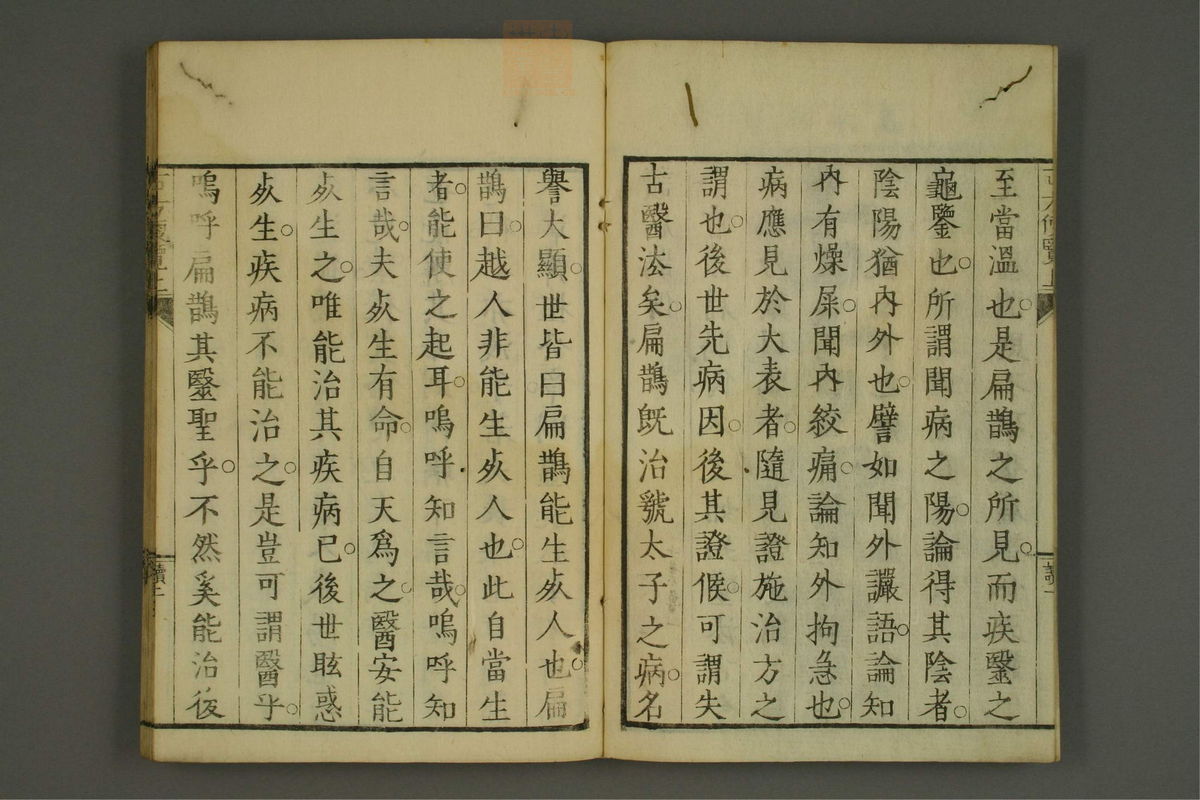 至當溫也。是扁鵲之所見。而疾毉之
龜鑒也。所謂聞病之陽。論得其陰者。
陰陽猶內外也。譬如聞外讝語。論知
內有燥屎。聞內絞痛。論知外拘急也。
病應見於大表者。隨見證施治方之
謂也。後世先病因。後其證候。可謂失
古醫法矣。扁鵲旣治虢太子之病。名
譽大顯。世皆曰扁鵲能生𣦸人也。扁
鵲曰。越人非能生𣦸人也。此自當生
者。能使之起耳。嗚呼知言哉。嗚呼知
言哉。夫𣦸生有命。自天爲之。醫安能
𣦸生之。唯能治其疾病已。後世眩惑
𣦸生。疾病不能治之。是豈可謂醫乎。
嗚呼扁鵲其毉聖乎。不然奚能治後